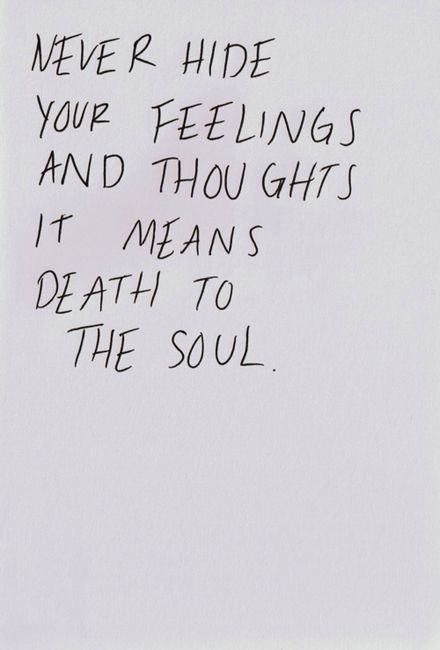 NEVER HIDE
YOUR FEELINGS
AND THOUGHTS
IT MEANS
DEATH TO
THE SOUL.